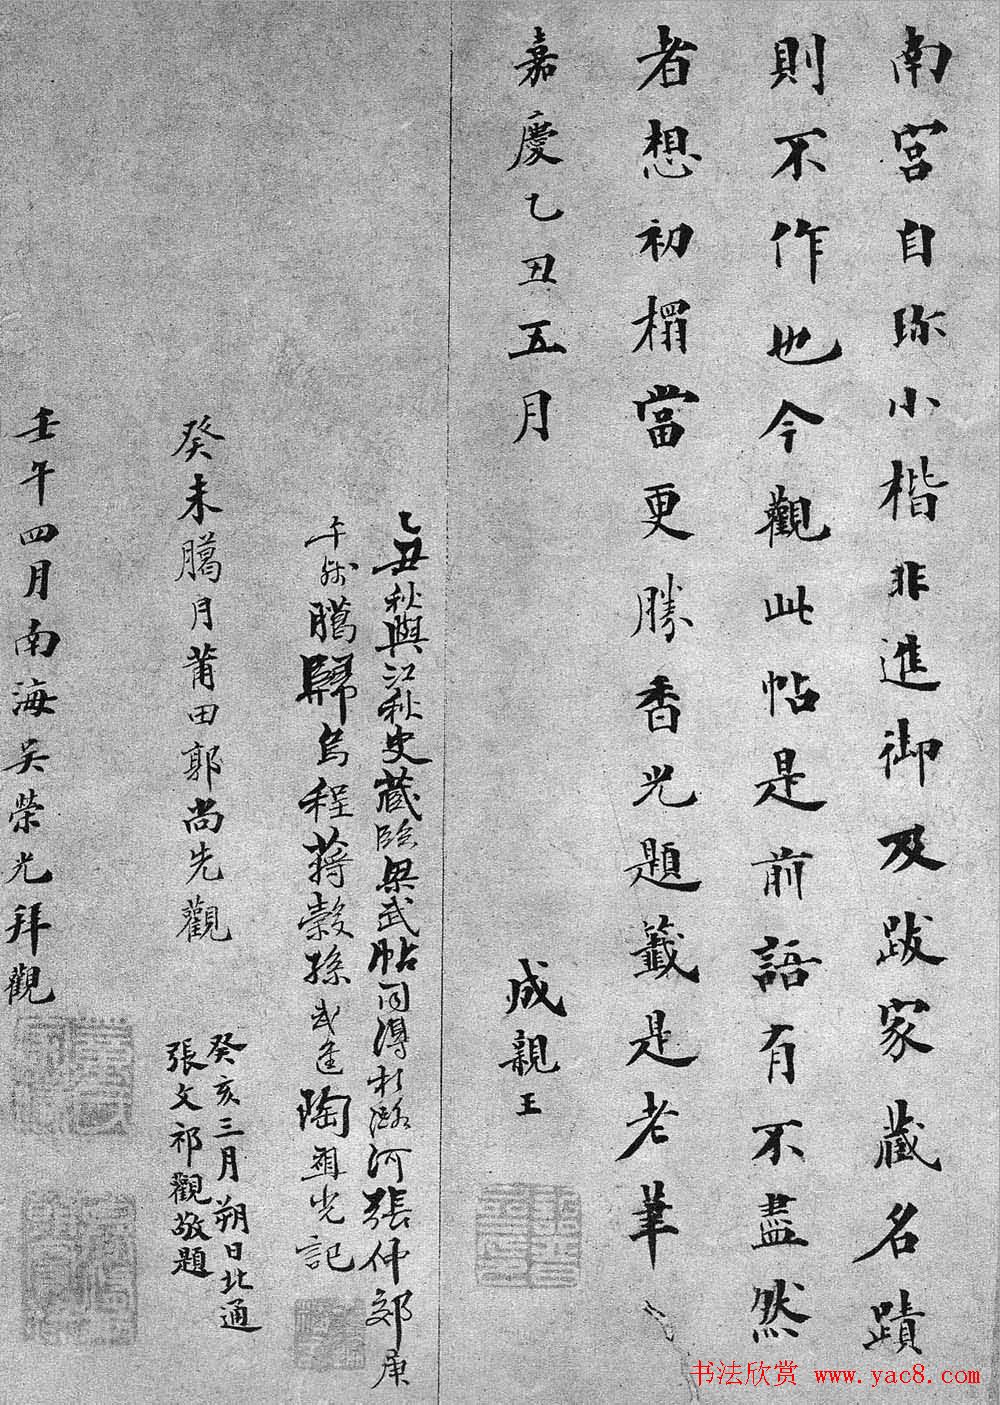 南宫自珎小楷非進御及跋家藏名蹟
則不作也今觀此帖是前語有不盡然
者想初榻當更勝香光題籤是老筆
嘉慶乙丑五月
成親王
乙丑秋與江秋史藏臨梁武帖同得於潞河張仲郊庚
午殘臈歸烏程蒋穀孫武進陶祖光記
癸未臈月莆田郭尚先觀
癸亥三月朔日北通
張文祁觀敬題
壬午四月南海吴榮光拜觀
书法欣赏 www.yac8.com